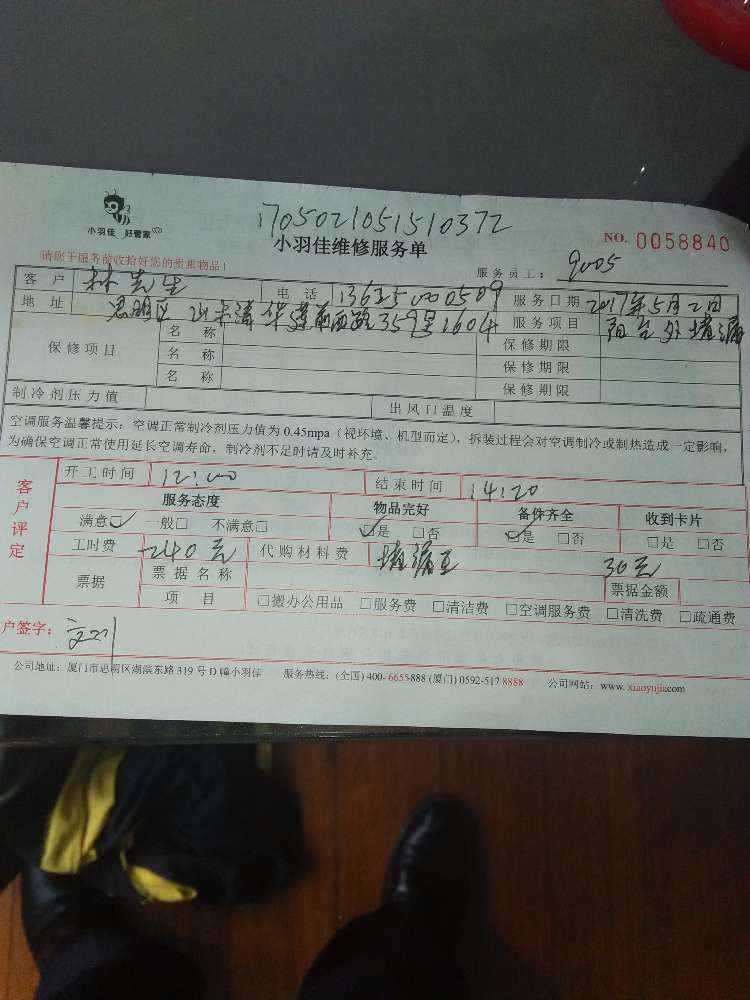 1705021051510372
小羽佳 好管家
小羽佳维修服务单
NO. 0058840
请您于服务前收拾好您的贵重物品！
服务员工： 9005
客户 林先生 电话 服务日期 2017年5月2日
地址 思明区 莲前西路359号1604 服务项目 阳台外堵漏
保修项目 名称 保修期限
名称 保修期限
名称 保修期限
制冷剂压力值 出风口温度
空调服务温馨提示：空调正常制冷剂压力值为 0.45mpa（视环境、机型而定），拆装过程会对空调制冷或制热造成一定影响，
为确保空调正常使用延长空调寿命，制冷剂不足时请及时补充。
客户评定
开工时间 12:00 结束时间 14:20
服务态度 物品完好 备件齐全 收到卡片
满意☑ 一般□ 不满意□ ☑是 □否 ☑是 □否 □是 □否
工时费 240元 代购材料费 堵漏王 30元
票据 票据名称 票据金额
项目 □搬办公用品 □服务费 □清洁费 □空调服务费 □清洗费 □疏通费
户签字：
公司地址：厦门市思明区湖滨东路 319 号 D 幢小羽佳 服务热线：(全国) 400-6655-888 (厦门) 0592-517 8888 公司网站：www.xiaoyujia.com